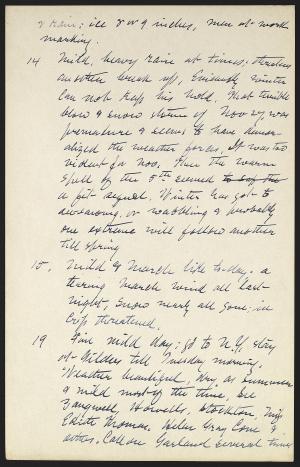 & rain; ice 8 or 9 inches, men at work
marking.
14 Mild, heavy rain at times; threatens
another break up, Evidently winter
can not keep his hold. That terrible
blow & snow storm of Nov 27, was
premature & seems to have demor-
alized the weather forces. It was too
violent for Nov. Then the warm
spell of the 5th seemed to say the
a fit sequel. Winter has got to
seesawing, or wabbling & probably
one extreme will follow another
till spring
15. Mild & March like to-day; a
tearing March wind all last
night, Snow nearly all gone; ice
crop threatened.
19 Fine mild day; go to N.Y. stay
at Gilders till Tuesday morning.
Weather beautiful, dry, as summer
& mild most of the time. See
Zangwill, Howells, Stockton, Miss
Edith Thomas. Helen Gray Cone &
others. Call on Garland several times